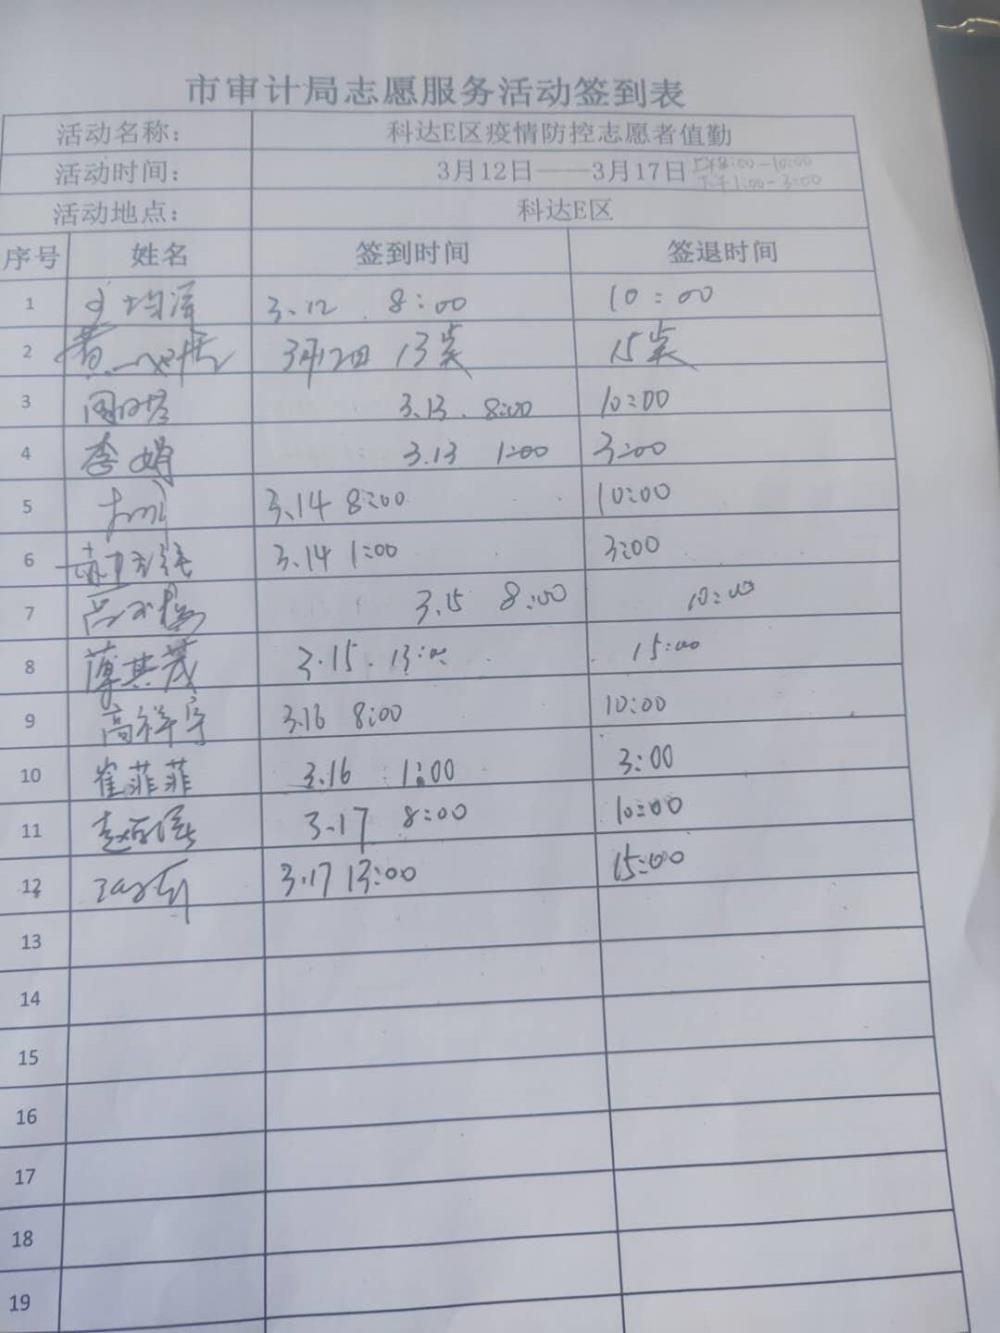 市审计局志愿服务活动签到表
活动名称： 科达E区疫情防控志愿者值勤
活动时间： 3月12日——3月17日 上午8:00-10:00
下午1:00-3:00
活动地点： 科达E区
序号 姓名 签到时间 签退时间
1 3.12 8:00 10:00
2 3月12日 13点 15点
3 3.13. 8:00 10:00
4 李娟 3.13 1:00 3:00
5 3.14 8:00 10:00
6 3.14 1:00 3:00
7 3.15 8:00 10:00
8 薄其茂 3.15. 13:00 15:00
9 高祥宇 3.16 8:00 10:00
10 崔菲菲 3.16 1:00 3:00
11 3.17 8:00 10:00
12 3.17 13:00 15:00
13
14
15
16
17
18
19